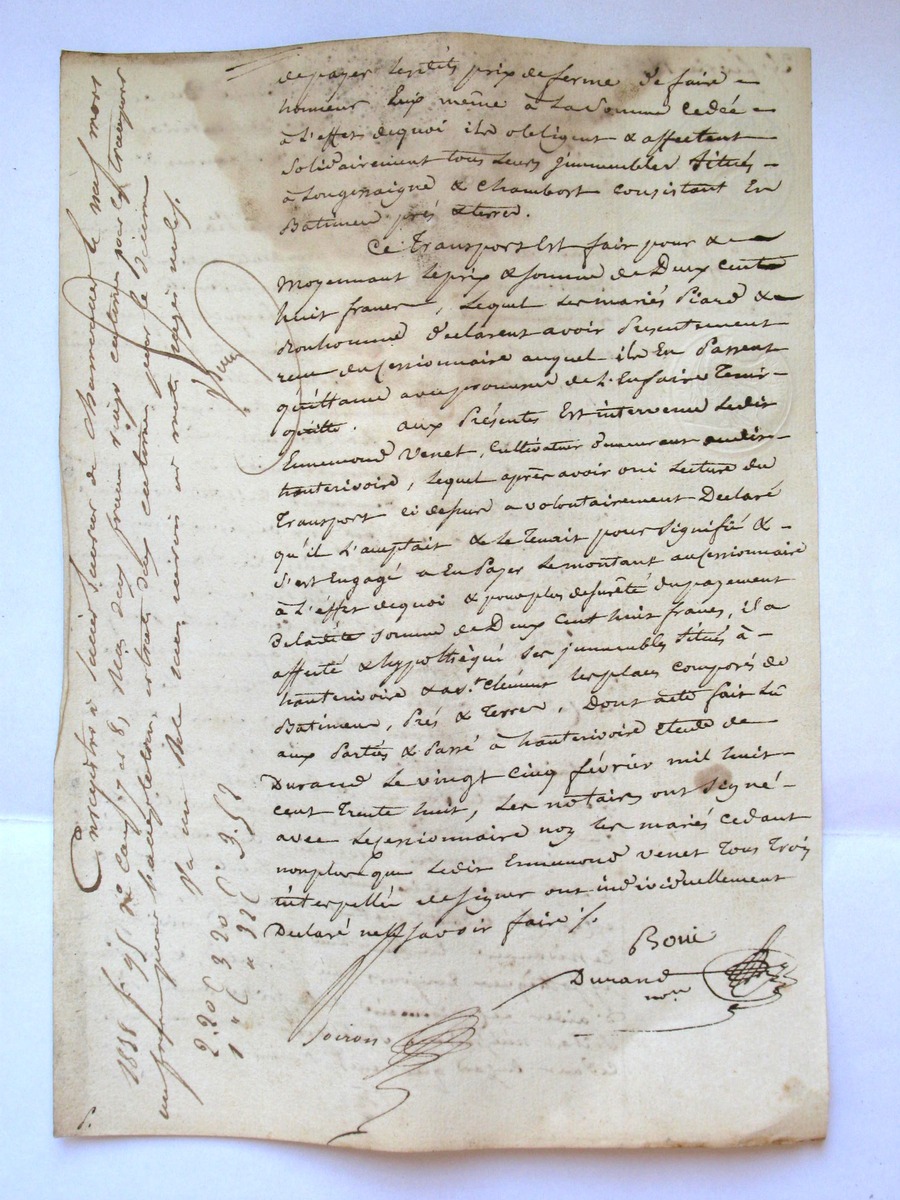 de payer lesdits prix de ferme & de faire
honneur Eux même à la somme Cedée
à L'effet de quoi ils obligent & affectent
Solidairement tous Leurs jmmeubles Situés
à Longessaigne & Chambort Consistant En
Batimen prés & terres.
Ce Transport Est fair pour &
Moyennant Le prix & somme de Deux cents
huit francs, Lequel Les mariés Piard &
Bonhomme Declarent avoir Présentement
reçu du Cessionnaire auquel ils En Passent
quittance avec promesse de L'En faire Tenir
quitte. aux Présentes Est intervenu Ledit
Ennemond Venet, Cultivateur demeurant audit
hauterivoire, Lequel après avoir oui Lecture du
Transport ci dessus a volontairement Declaré
qu'il L'acceptait & Le Tenait pour Signifié &
S'est Engagé a En Payer Le montant au Cessionnaire
à L'éffet de quoi & pour plus de sureté du payement
de ladite Somme de Deux Cent huit francs, il a
affecté & hypothéqué Ses jmmeubles Situés à
hauterivoire & a St Clément les places Composés de
Batimens, Prés & Terres, Dont acte fait Lu
aux Parties & Passé à hauterivoire Etude de
Durand Le vingt Cinq février mil huit
cent Trente huit, Les notaires ont Signé
avec Le Cessionnaire non Les mariés Cedant
non plus que Ledit Ennemond Venet Tous Trois
interpellés de signer ont individuellement
Declaré ne Savoir faire /.
Boué
Durand
nore
Soiron
Enregistré à Saint Laurent de Chamousset le neuf mars
1838 fo 95 Ro Cases 7 et 8, Reçu deux francs vingt centimes pour le transport
un franc pour
et trente deux centimes pour le décime
2.20 3.20 3.52
1 " " 32